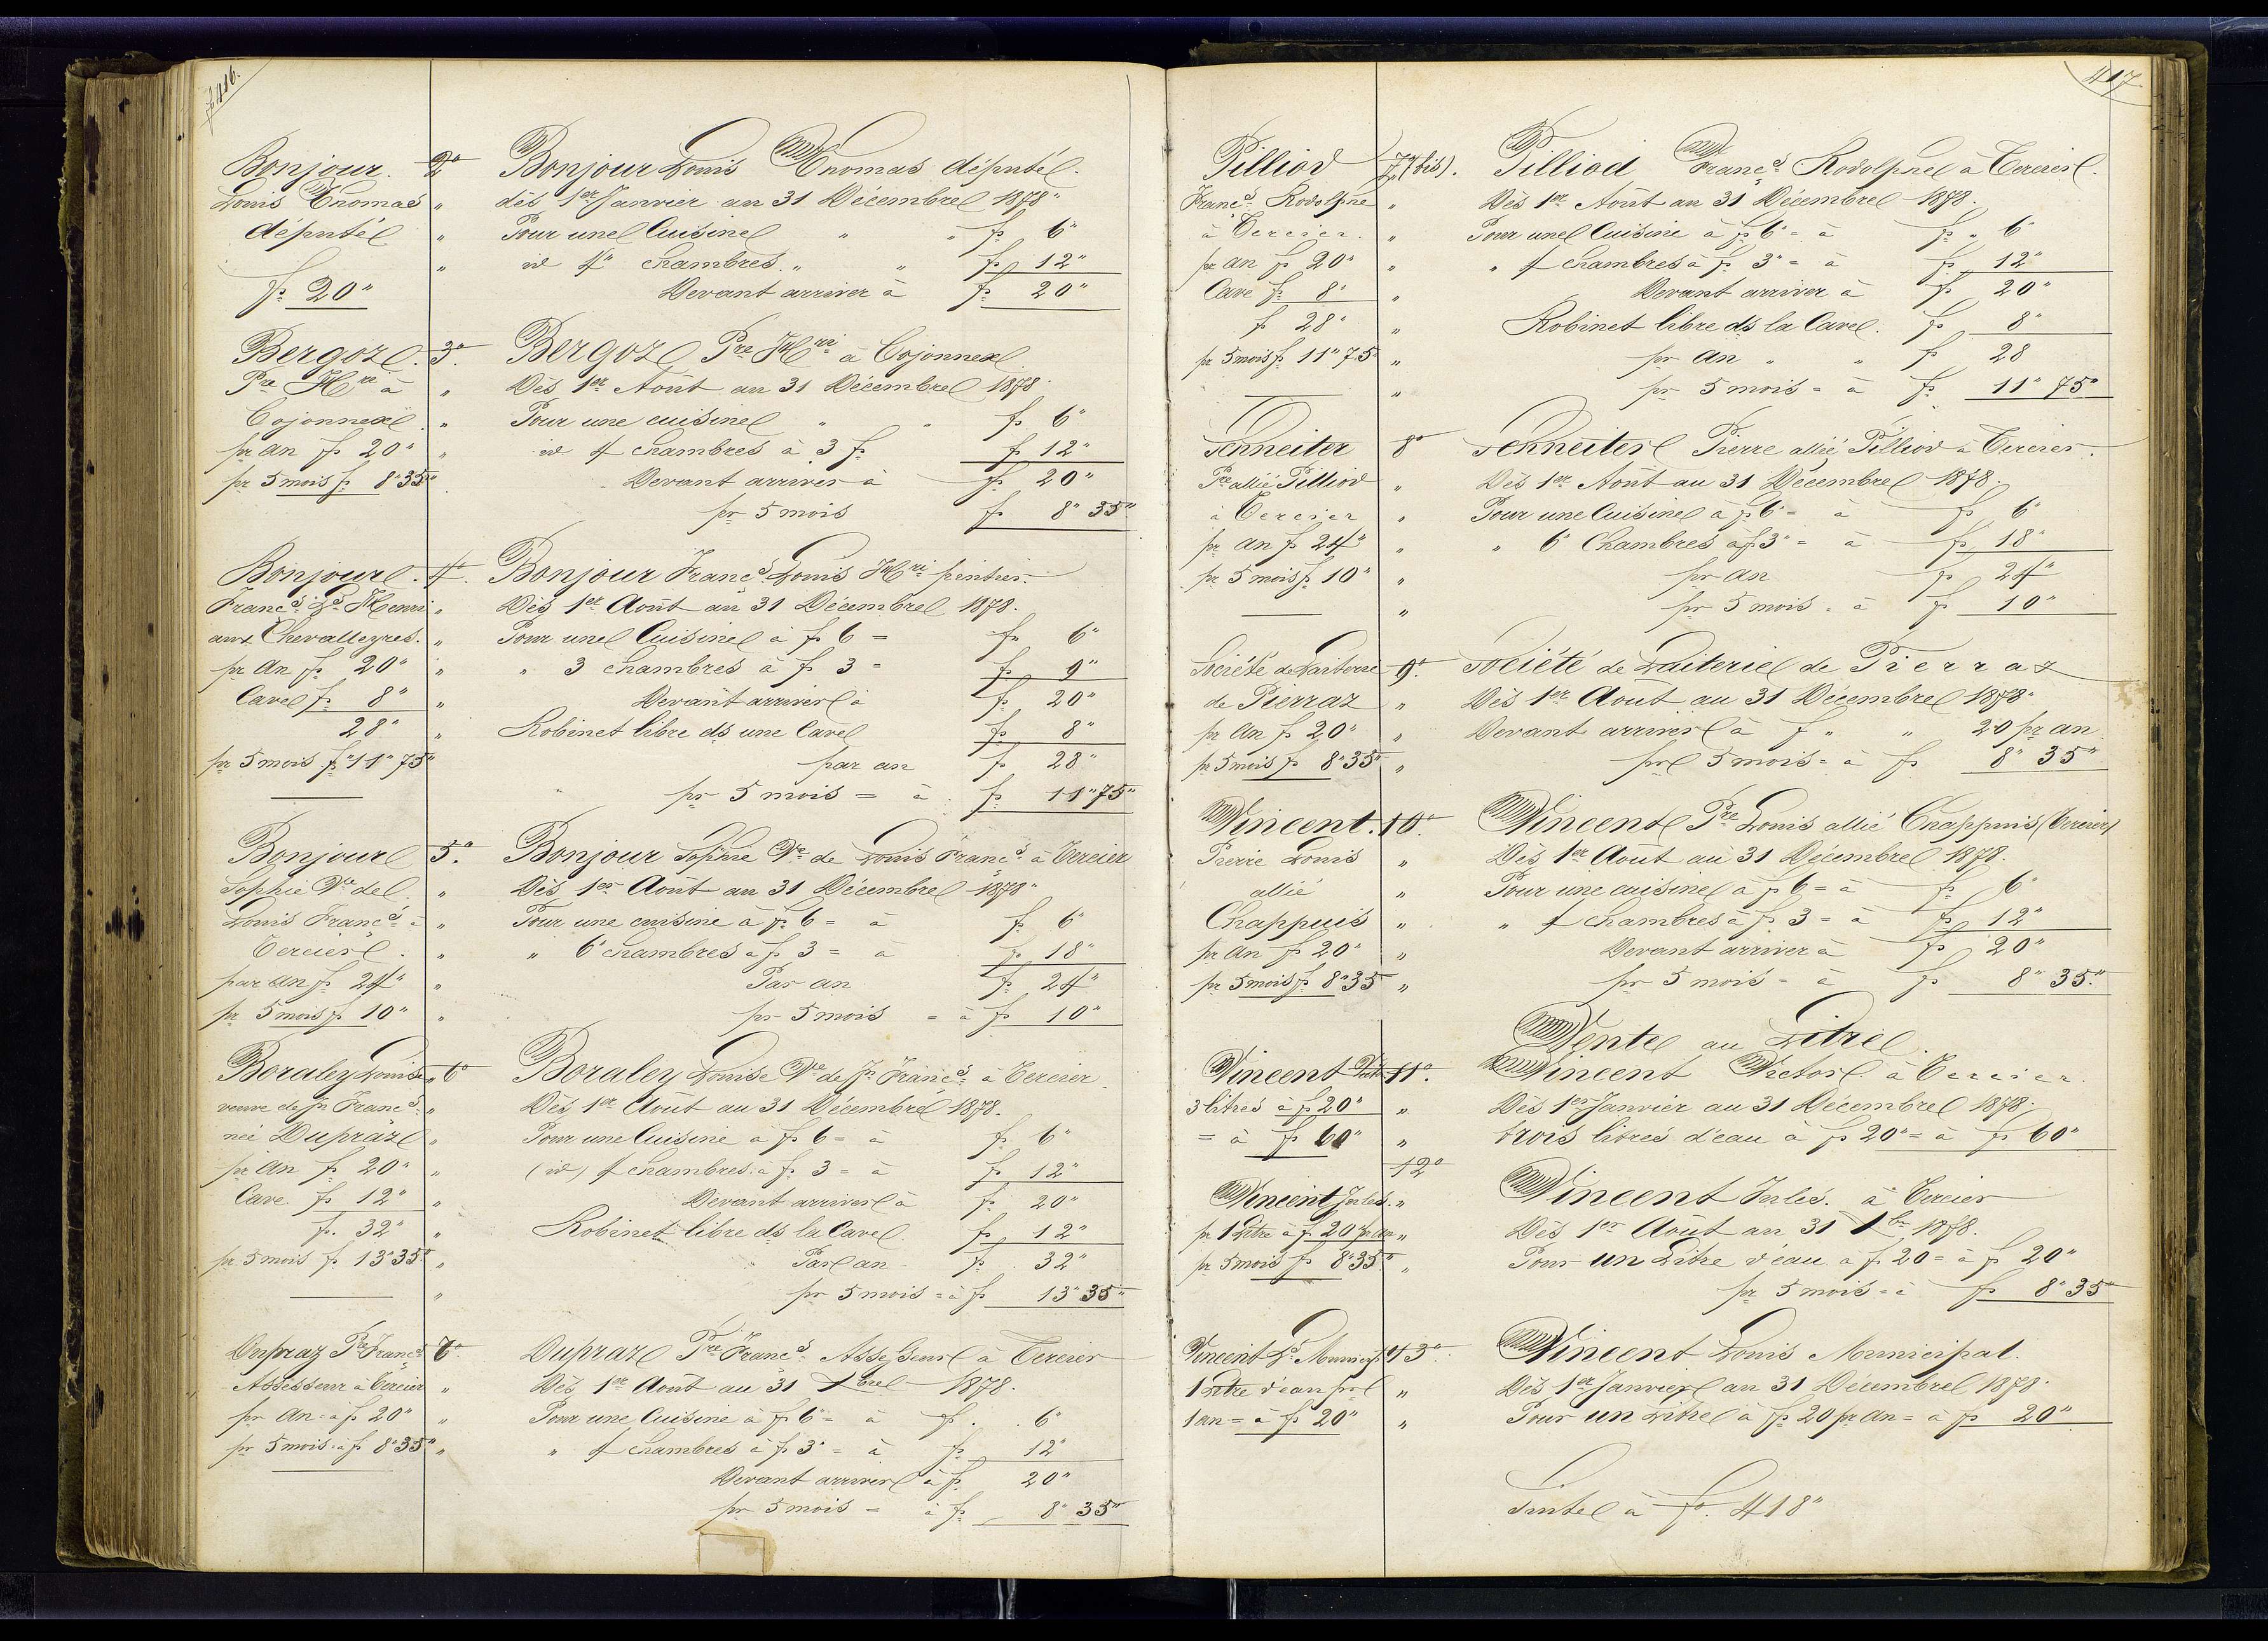 p 416.
Bonjour. 2°
Louis Thomas "
député "
"
fr. 20"
Bonjour Louis Thomas député.
dès 1er Janvier au 31 Décembre 1878"
Pour une Cuisine " " fr 6"
id 4" chambres " " fr 12"
Devant arriver à fr 20"
Bergoz. 3°
Pre Hri à "
Cojonnex "
pr an fr 20" "
pr 5 mois fr 8"35"
Bergoz Pre Hri à Cojonnex
Dès 1er Août au 31 Décembre 1878.
Pour une cuisine " " fr 6"
id 4 chambres à 3 fr fr 12"
Devant arriver à fr 20"
pr 5 mois fr 8" 35"
Bonjour. 4°
Francs Ls Henri "
aux Chevalleyres. "
pr an fr 20" "
Cave fr 8" "
28" "
pr 5 mois fr "11"75"
Bonjour Francs Louis Hri peintre.
Dès 1er Août au 31 Décembre 1878.
Pour une Cuisine à fr 6 = fr 6"
" 3 chambres à fr 3 = fr 9"
Devant arriver à fr 20"
Robinet libre ds une Cave fr 8"
par an fr 28"
pr 5 mois = à fr 11"75"
Bonjour 5°
Sophie Ve de "
Louis Francs à "
Tercier. "
par an fr 24" "
pr 5 mois fr 10" "
Bonjour Sophie Ve de Louis Francs à Tercier
Dès 1er Août au 31 Décembre 1878"
Pour une cuisine à fr 6 = à fr 6"
" 6 chambres à fr 3 = à fr 18"
Par an fr 24"
pr 5 mois = à fr 10"
Boraley Louise " 6°
veuve de Jn Francs "
née Dupraz "
pr an fr 20" "
Cave fr 12" "
fr. 32" "
pr 5 mois fr 13"35" "
"
Boraley Louise Ve de Jn Francs à Tercier.
Dès 1er Août au 31 Décembre 1878.
Pour une Cuisine à fr 6 = à fr 6"
(id) 4 chambres à fr 3 = à fr 12"
Devant arriver à fr 20"
Robinet libre ds la Cave fr 12"
Par an fr 32"
pr 5 mois = à fr 13"35"
Dupraz Pre Francs 7°
Assesseur à Tercier "
pr an = à fr 20" "
pr 5 mois = à fr 8"35" "
Dupraz Pre Francs Assesseur à Tercier
Dès 1er Août au 31 Xbre 1878.
Pour une Cuisine à fr 6" = à fr. . 6"
" 4 chambres à fr 3" = à fr 12"
Devant arriver à fr 20"
pr 5 mois = à fr 8" 35"
417
Pilliod 7° (bis).
Francs Rodolphe "
à Tercier. "
pr an fr 20" "
Cave fr 8" "
fr 28" "
pr 5 mois fr 11"75 "
"
Pilliod Francs Rodolphe à Tercier.
Dès 1er Août au 31 Décembre 1878.
Pour une Cuisine à fr 6" = à fr " 6"
" 4 chambres à fr 3" = à fr 12"
Devant arriver à fr 20"
Robinet libre ds la Cave. fr 8"
pr an " " fr 28
pr 5 mois = à fr 11" 75"
Schneiter 8°
Pre allié Pilliod "
à Tercier "
pr an fr 24" "
pr 5 mois fr 10" "
"
Schneiter Pierre allié Pilliod à Tercier.
Dès 1er Août au 31 Décembre 1878.
Pour une Cuisine à fr 6" = à fr 6"
" 6" Chambres à fr 3" = à fr 18"
pr an fr 24"
pr 5 mois = à fr 10"
Société de Laiterie 9°.
de Pierraz "
pr an fr 20" "
pr 5 mois fr 8"35" "
Société de Laiterie de Pierraz
Dès 1er Août au 31 Décembre 1878"
Devant arriver à fr " " 20 pr an
pr 5 mois = à fr 8" 35"
Vincent. 10°.
Pierre Louis "
allié "
Chappuis "
pr an fr 20" "
pr 5 mois fr 8"35 "
Vincent Pre Louis allié Chappuis (Tercier)
Dès 1er Août au 31 Décembre 1878.
Pour une cuisine à fr 6 = à fr 6"
" 4 chambres à fr 3 = à fr 12"
Devant arriver à fr 20"
pr 5 mois = à fr 8" 35."
Vente au Litre.
Vincent Victor 11°.
3 litres à fr 20" "
= à fr 60" "
Vincent Victor à Tercier.
Dès 1er Janvier au 31 Décembre 1878.
trois litres d'eau à fr 20" = à fr 60"
12°
Vincent Jules. "
pr 1 Litre à fr 20 pr an "
pr 5 mois fr 8"35" "
Vincent Jules. à Tercier
Dès 1er Août au 31 Xbre 1878.
Pour un Litre d'eau à fr 20 = à fr 20"
pr 5 mois = à fr 8"35
Vincent Ls Municipal 13°.
1 Litre d'eau pr "
1 an = à fr 20" "
Vincent Louis Municipal.
Dès 1er Janvier au 31 Décembre 1878.
Pour un Litre à fr 20 pr an = à fr 20"
à fr. 418"